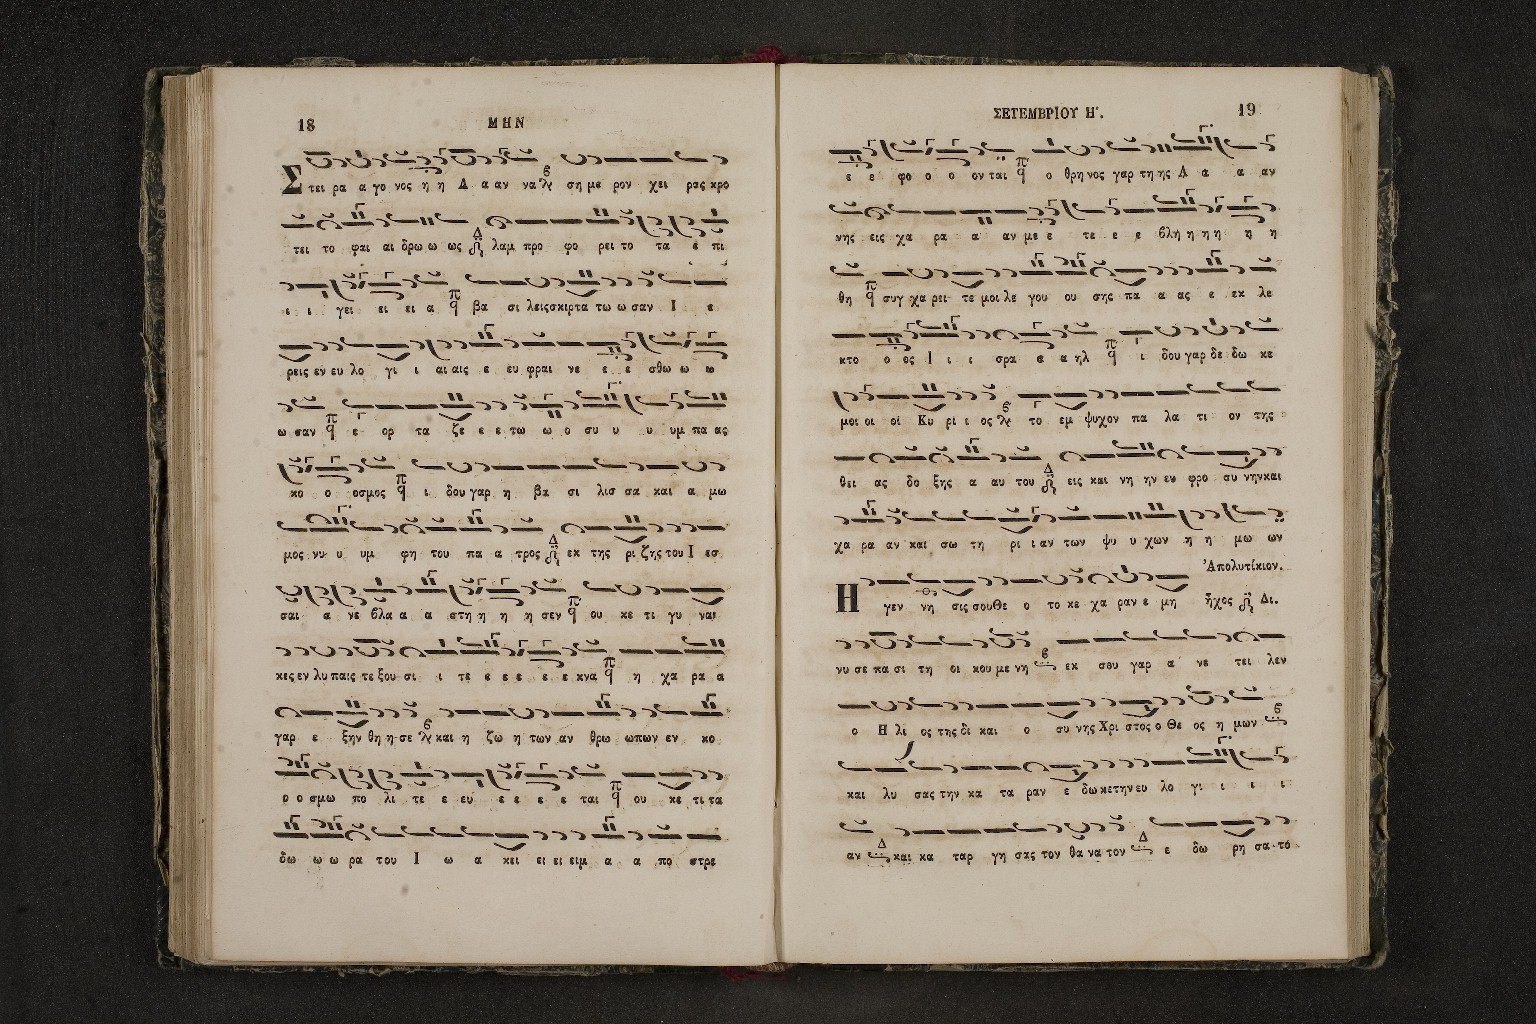 18
ΜΗΝ
Στει ρα α γο νος η η Α α αν να ση με ρον χει ρας κρο
τει το φαι αι δρω ω ως λαμ προ φο ρει το τα ε πι
ι ι γει ει ει α βα σι λεις σκιρτα τω ω σαν Ι ε
ρεις εν ευ λο γι ι αι αις ε ευ φραι νε ε ε σθω ω ω
ω σαν ε ορ τα ζε ε ε τω ω ο συ υ υ υμ πα ας
κο ο οσμος ι δου γαρ η βα σι λισ σα και α μω
μος νυ υ υμ φη του πα α τρος εκ της ρι ζης του Ι εσ
σαι α νε βλα α α στη η η η σεν ου κε τι γυ ναι
κες εν λυ παις τε ξου σι ι τε ε ε ε ε ε κνα η χα ρα α
γαρ ε ξην θη η σε και η ζω η των αν θρω ωπων εν κο
ο ο σμω πο λι τε ε ευ ε ε ε ε ται ου κε τι τα
δω ω ω ρα του Ι ω α κει ει ει ειμ α α πο στρε
ΣΕΤΕΜΒΡΙΟΥ Η΄.
19
ε ε φο ο ο ον ται ο θρη νος γαρ τη ης Α α α αν
νης εις χα ρα α αν με ε τε ε ε βλη η η η η η
θη συγ χα ρει τε μοι λε γου ου σης πα α ας ε εκ λε
κτο ο ος Ι ι ι σρα α α ηλ ι δου γαρ δε δω κε
μοι οι οι Κυ ρι ι ος το εμ ψυχον πα λα τι ον της
θει ας δο ξης α αυ του εις και νη ην ευ φρο συ νην και
χα ρα αν και σω τη ρι ι αν των ψυ υ χων η η μω ων
Ἀπολυτίκιον.
Η γεν νη σις σου Θε ο το κε χα ραν ε μη ἦχος Δι.
νυ σε πα σι τη οι κου με νη εκ σου γαρ α νε τει λεν
ο Η λι ος της δι και ο συ νης Χρι στος ο Θε ος η μων
και λυ σας την κα τα ραν ε δω κε την ευ λο γι ι ι ι
αν και κα ταρ γη σας τον θα να τον ε δω ρη σα το